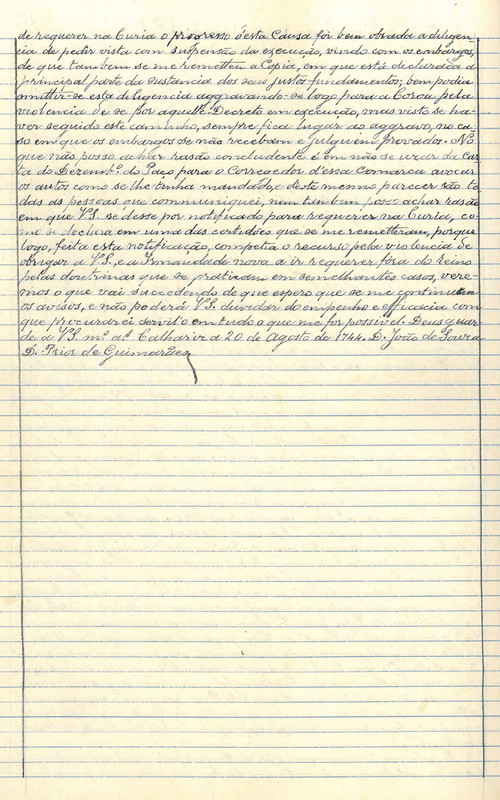 de requerer na Curia o progresso d'esta Causa foi bem obrada a diligen-
cia de pedir vista com suspensão da execução, vindo com os embargos,
de que tambem se me remetteu a Copia, em que está declarada a
principal parte da sustancia dos seus justos fundamentos; bem podia
omittir-se esta diligencia aggravando-se logo para a Coroa pela
violencia de se pôr aquelle Decreto em execução, mas visto se ha-
ver seguido este caminho, sempre fica lugar ao aggravo, no ca-
so em que os embargos se não recebam e julguem provados. No
que não posso achar rasão concludente é em não se uzar da Car
ta do Dezemb.º do Paço para o Corregedor d'essa Comarca avocar
os autos como se lhe tinha mandado, e deste mesmo parecer são to-
das as pessoas que communiquei, nem tambem posso achar rasão
em que V.S. se desse por notificado para requerer na Curia, co-
mo se declara em uma das certidões que se me remetteram, porque
logo, feita esta notificação, competia o recurso pela violencia de
obrigar a V.S. e a Irmandade nova a ir requerer fóra do reino
pelas doutrinas que se praticam em semelhantes casos, vere-
mos o que vai succedendo de que espero que se me continuem
os avisos, e não poderá V.S. duvidar do empenho e efficacia com
que procurarei servil-o em tudo o que me for possivel. Deus guar-
de a V.S. m.º a.º Calhariz a 20 de Agosto de 1744. D. João de Souza
D. Prior de Guimarães